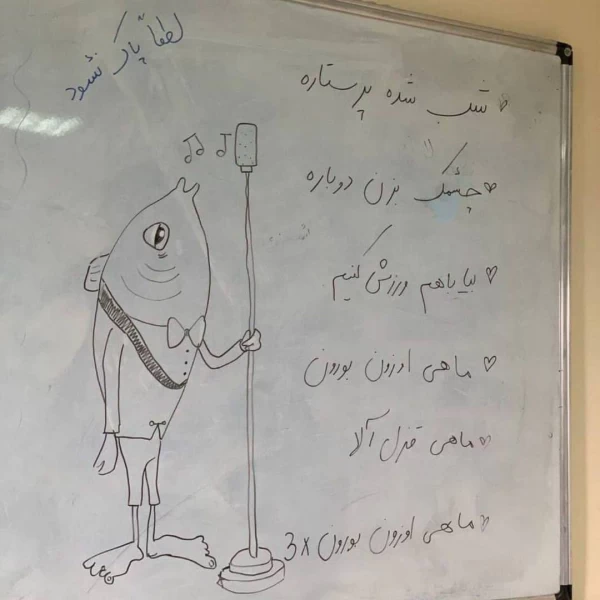 لطفاً پاک نشود
شب شده پرستاره
چشمک بزن دوباره
بیا باهم ورزش کنیم
ماهی اوزون بورون
ماهی قزل آلا
ماهی اوزون بورون 3x